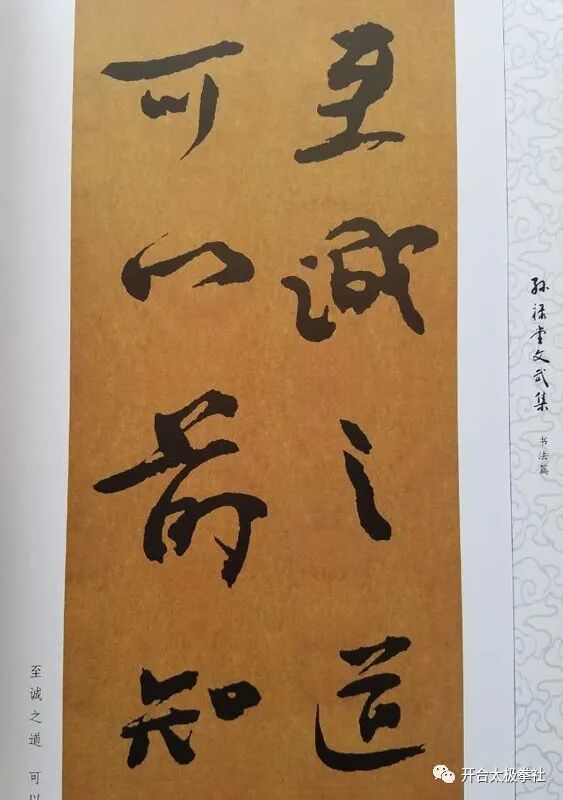 至诚之道
可以前知
孙禄堂文武集
书法篇
至诚之道 可以
开合太极拳社